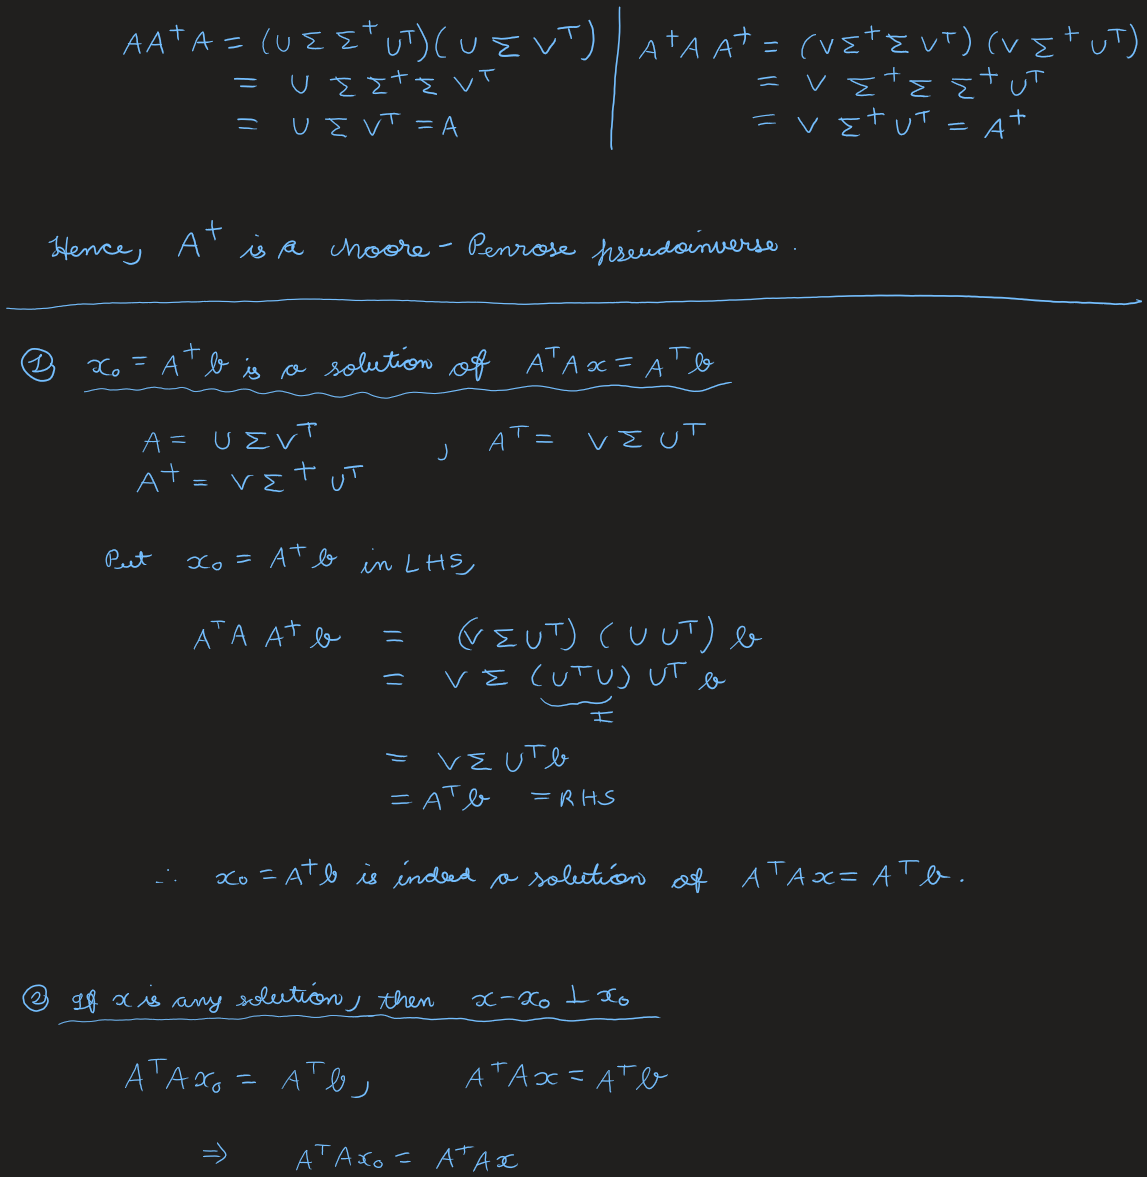 AA⁺A = (U Σ Σ⁺ Uᵀ)(U Σ Vᵀ)
= U Σ Σ⁺ Σ Vᵀ
= U Σ Vᵀ = A
A⁺A A⁺ = (V Σ⁺ Σ Vᵀ) (V Σ⁺ Uᵀ)
= V Σ⁺ Σ Σ⁺ Uᵀ
= V Σ⁺ Uᵀ = A⁺
Hence, A⁺ is a Moore-Penrose pseudoinverse.
① x₀ = A⁺ b is a solution of AᵀA x = Aᵀ b
A = U Σ Vᵀ , Aᵀ = V Σ Uᵀ
A⁺ = V Σ⁺ Uᵀ
Put x₀ = A⁺ b in LHS,
AᵀA A⁺ b = (V Σ Uᵀ) (U Uᵀ) b
= V Σ (Uᵀ U) Uᵀ b
I
= V Σ Uᵀ b
= Aᵀ b = RHS
∴ x₀ = A⁺ b is indeed a solution of AᵀA x = Aᵀ b.
② If x is any solution, then x - x₀ ⊥ x₀
AᵀA x₀ = Aᵀ b, AᵀA x = Aᵀ b
⇒ AᵀA x₀ = AᵀA x